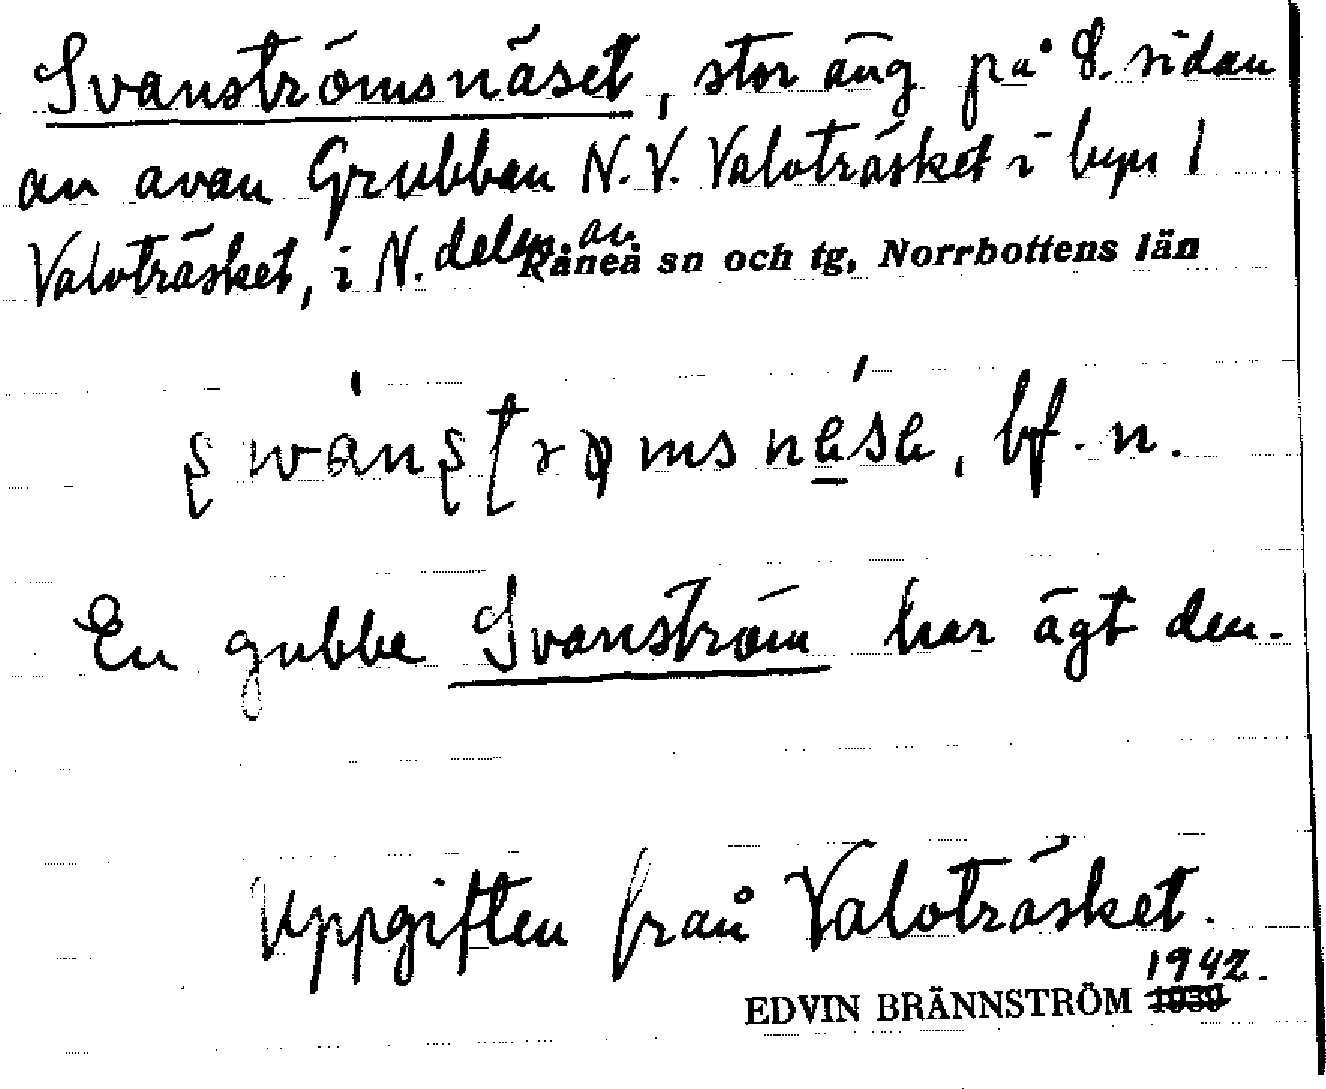 Svanströmsnäset, stor äng på S. sidan
an avan Grubban N.V. Valvträsket i byn
Valvträsket, i N. delen av Råneå sn och tg, Norrbottens län
bf. n.
En gubbe Svanström har ägt den.
Uppgiften från Valvträsket.
1942.
EDVIN BRÄNNSTRÖM 1939